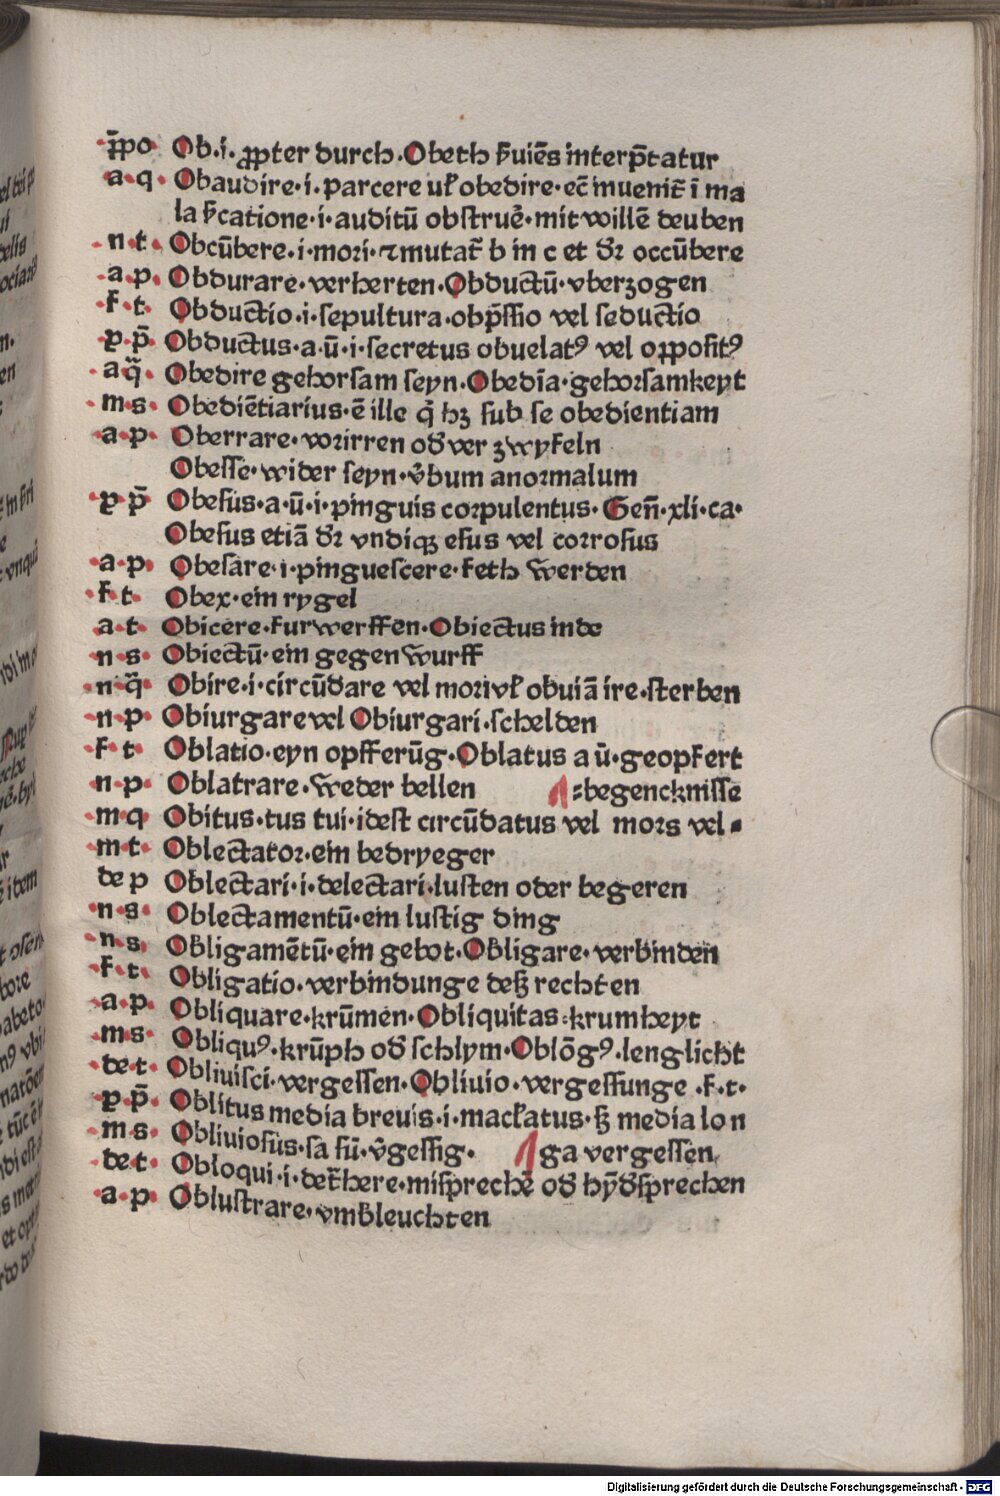 p̄po Ob·i·ꝓpter durch·Obeth ẜuiēs interp̄tatur
a·q· Obaudire·i·parcere uł obedire·ec̄ inuenit̄ ī ma
la ẜcatione·i·auditū obstruē·mit willē deuben
n·t· Obcūbere·i·mori·⁊mutat̄ b in c et dr̄ occūbere
a·p· Obdurare·verherten·Obductū·vberzogen
f·t· Obductio·i·sepultura·obp̄ssio vel seductio
p·p̄· Obductus·a·ū·i·secretus obuelatꝰ vel oppositꝰ
a q̄· Obedire gehorsam seyn·Obedīa·gehorsamkeyt
m·s· Obediētiarius·ē ille q̇ hꝫ sub se obedientiam
a·p· Oberrare·vorirren od̄ ver zwyfeln
Obesse·wider seyn·v̄bum anormalum
p·p̄ Obesus·a·ū·i·pinguis corpulentus·Gen̄·xli·ca·
Obesus etiā dr̄ vndiqꝫ esus vel corrosus
a·p· Obesare·i·pinguescere·feth werden
f·t· Obex·ein rygel
a·t· Obicere·furwerffen·Obiectus inde
n·s· Obiectū·ein gegen wurff
n·q̄· Obire·i·circūdare vel mori vł obuiā ire·sterben
n·p· Obiurgare vel Obiurgari·schelden
f·t· Oblatio·eyn opfferūg·Oblatus a ū·geopfert
n·p· Oblatrare·weder bellen ⸗begencknisse
m·q Obitus·tus tui·idest circūdatus vel mors vel⸗
m·t· Oblectator·ein bedryeger
de p Oblectari·i·delectari·lusten oder begeren
n·s· Oblectamentū·ein lustig ding
n·s· Obligamētū·ein gebot·Obligare·verbinden
f·t· Obligatio·verbindunge deß rechten
a·p· Obliquare·krūmen·Obliquitas·krumheyt
m·s· Obliquꝰ·krūph od̄ schlym·Oblōgꝰ·lenglicht
de·t· Obliuisci·vergessen·Obliuio·vergessunge ·f·t·
p·p̄· Oblitus media breuis·i·mac̄latus·ß media lon
m·s· Obliuiosus·sa sū·v̄gessig· ga vergessen,
de·t· Obloqui·i·det̄here·misprechē od̄ hȳd̄sprechen
a·p· Oblustrare·vmb̄leuchten
Digitalisierung gefördert durch die Deutsche Forschungsgemeinschaft - DFG